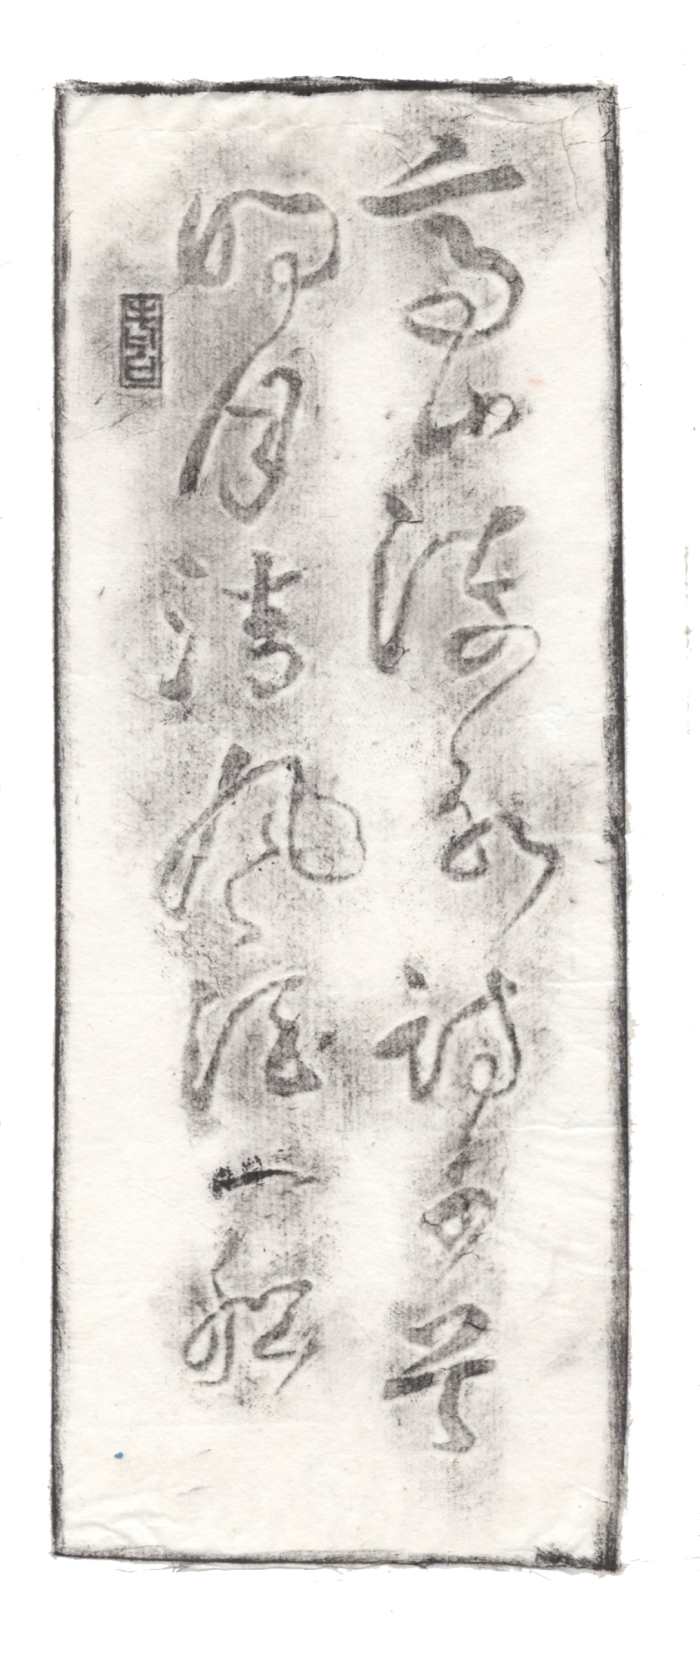 高山流水詩
明月清風酒一船